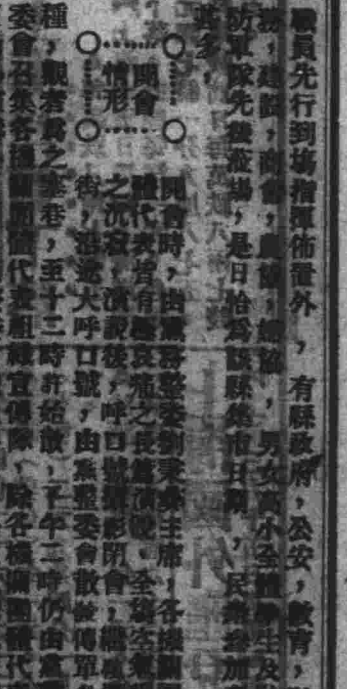 職員先行到塲指揮佈置外，有縣政府，公安，敎育，
務，建設，商會，農會，總協，男女高小全體學生及
防軍隊先後蒞塲，是日恰爲該縣集市日期，民衆參加
甚多，
開會
情形
開會時，由黨務整委劉秉彝主席，各機關
體代表皆有極哀痛之長篇演說，全塲空氣
之沉寂，演說後，呼口號攝影閉會，繼
街，沿途大呼口號，由黨整委會散發傳單
種，觀者爲之塞巷，至十二時許始散，下午二時仍由黨
委會召集各機關團體代表組織宣傳隊，除各機關團體代表